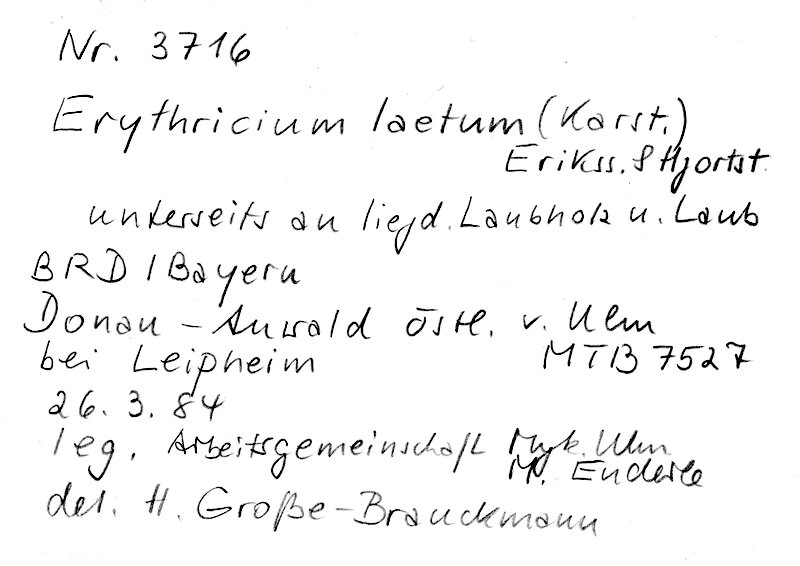 Nr. 3716
Erythricium laetum (Karst.)
Erikss. & Hjortst.
unterseits an liegd. Laubholz u. Laub
BRD / Bayern
Donau - Auwald östl. v. Ulm
bei Leipheim MTB 7527
26. 3. 84
leg. Arbeitsgemeinschaft Myk. Ulm
M. Enderle
det. H. Große-Brauckmann